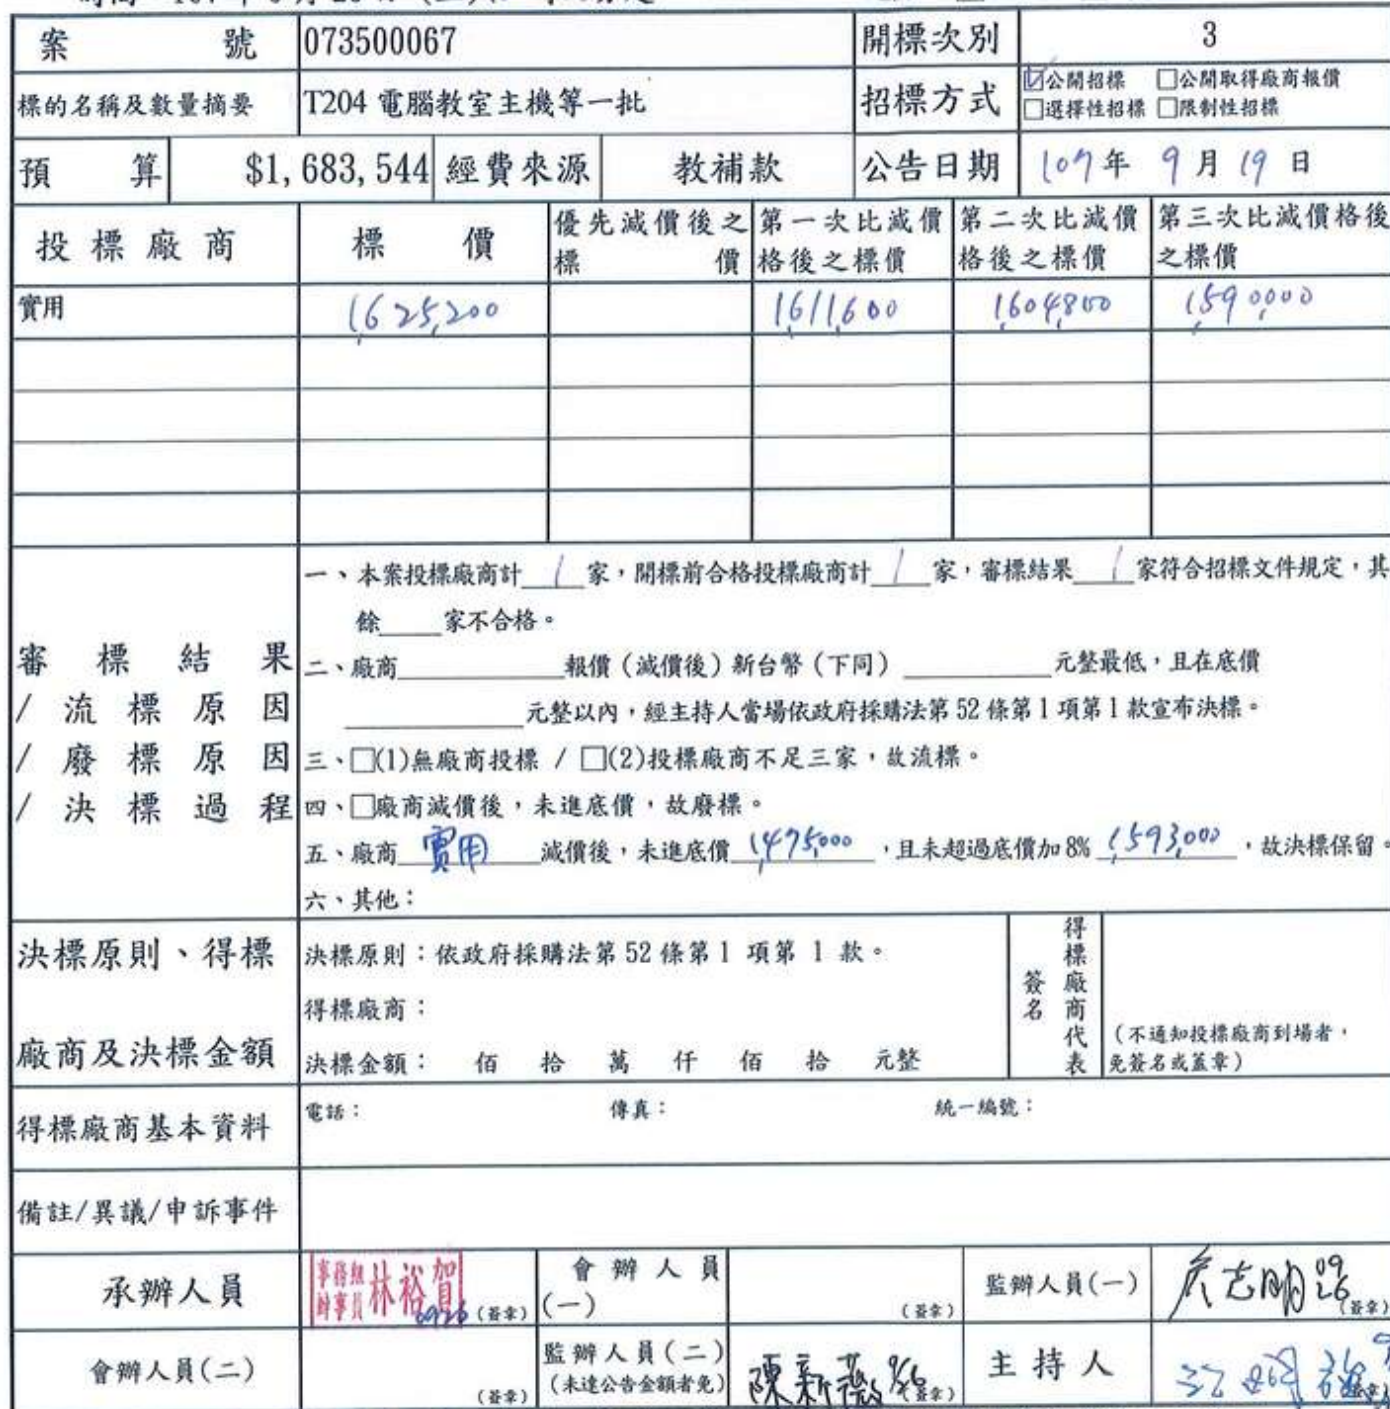 案 號 073500067 開標次別 3
標的名稱及數量摘要 T204 電腦教室主機等一批 招標方式 ☑公開招標 □公開取得廠商報價
□選擇性招標 □限制性招標
預 算 $1,683,544 經費來源 教補款 公告日期 107年 9月 19日
投標廠商 標 價 優先減價後之標 價 第一次比減價格後之標價 第二次比減價格後之標價 第三次比減價格後之標價
實用 1,625,200 1,611,600 1,604,800 1,590,000
審標結果
/流標原因
/廢標原因
/決標過程
一、本案投標廠商計 1 家,開標前合格投標廠商計 1 家,審標結果 1 家符合招標文件規定,其
餘____家不合格。
二、廠商________報價(減價後)新台幣(下同)________元整最低,且在底價
________元整以內,經主持人當場依政府採購法第 52 條第 1 項第 1 款宣布決標。
三、□(1)無廠商投標 / □(2)投標廠商不足三家,故流標。
四、□廠商減價後,未進底價,故廢標。
五、廠商 實用 減價後,未進底價 1,475,000 ,且未超過底價加 8% 1,593,000 ,故決標保留。
六、其他:
決標原則、得標
廠商及決標金額
決標原則:依政府採購法第 52 條第 1 項第 1 款。
得標廠商:
決標金額: 佰 拾 萬 仟 佰 拾 元整
得標廠商代表
簽名
(不通知投標廠商到場者,
免簽名或蓋章)
得標廠商基本資料 電話: 傳真: 統一編號:
備註/異議/申訴事件
承辦人員 事務組 辦事員 林裕賀 0926 (簽章) 會辦人員(一) (簽章) 監辦人員(一) 志明 09 26 (簽章)
會辦人員(二) (簽章) 監辦人員(二) (未達公告金額者免) 陳新薇 9/26 (簽章) 主持人